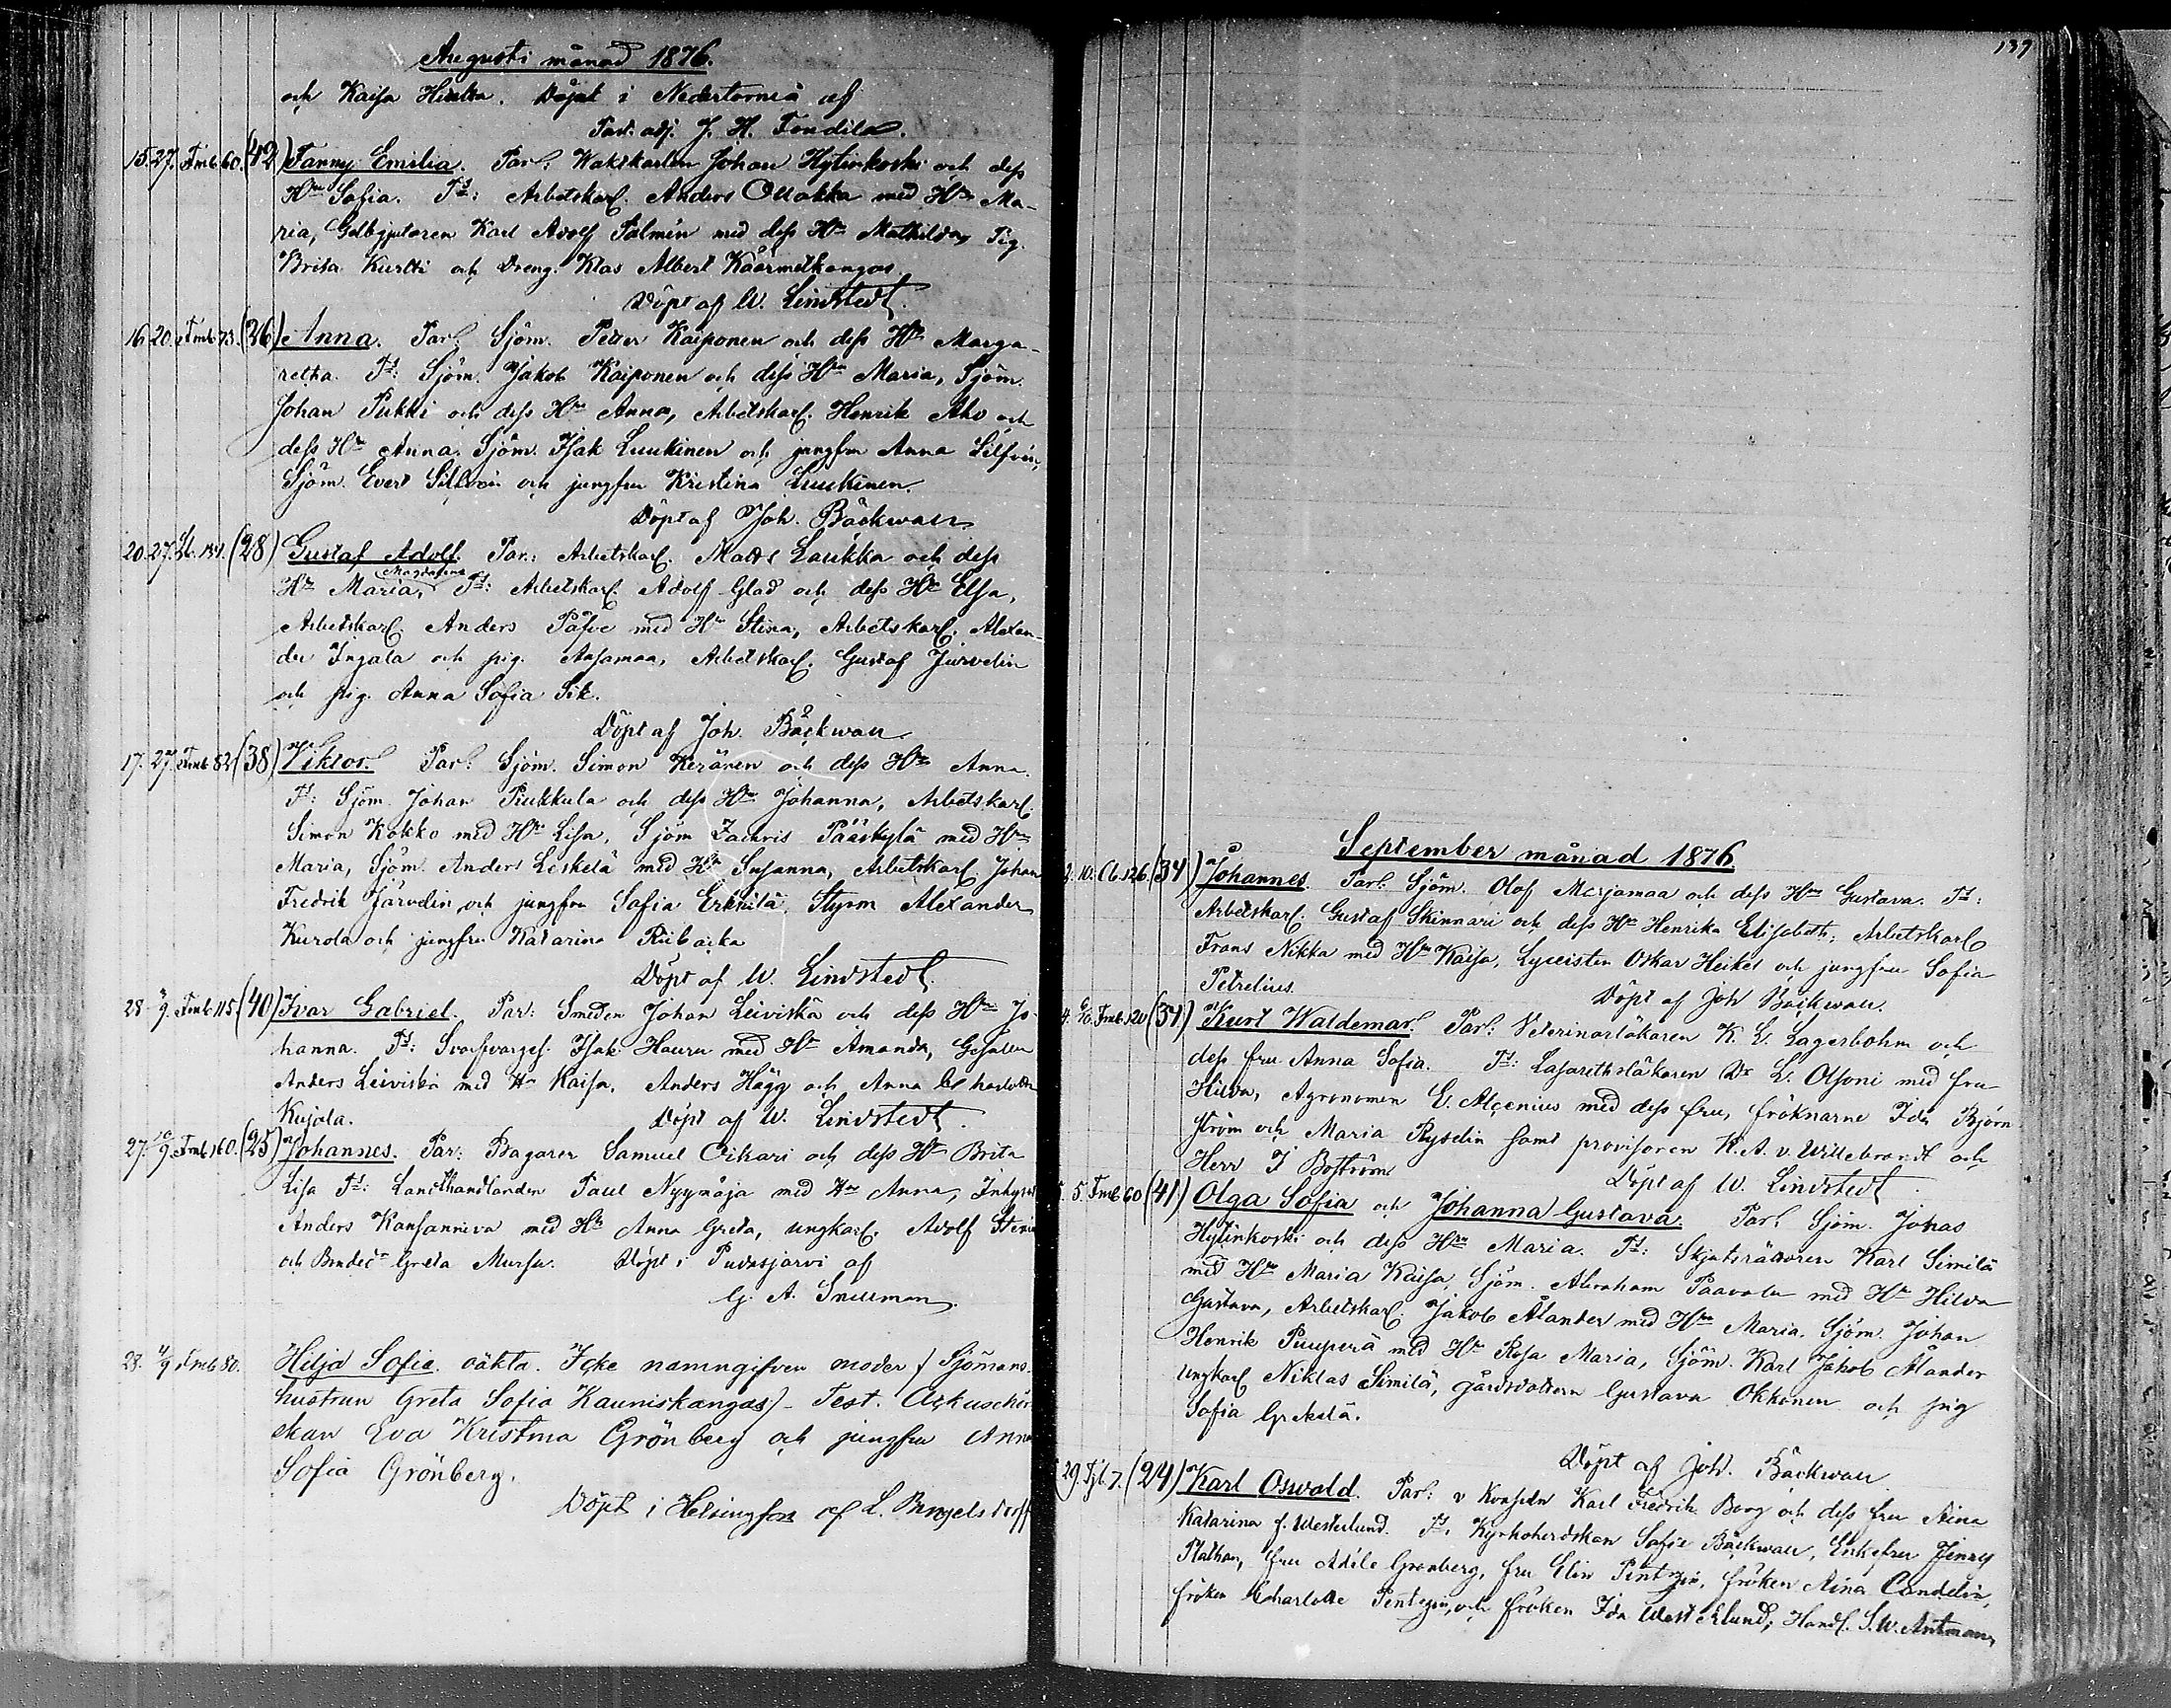 Augusti månad 1876.
och Kaisa Hirska. Döpt i Nedertorneå af
Past. adj. J. H. Fondila.
15. 27. Fmb. 60. (42) Fanny Emilia. Par: Waktkarlen Johan Hytinkoski och dess
Hru Sofia. Tt: Arbetskarl. Anders Ollakka med Hru Ma-
ria, Gelbgjutaren Karl Adolf Palmén med dess Hru Mathilda, Pig.
Brita Kurtti och Dreng. Klas Albert Käärmekangas
Döpt af W. Lindstedt.
16. 20. Fmb. 73. (26) Anna. Par: Sjöm. Petter Kaiponen och dess Hru Marga-
retha. Tt: Sjöm. Jakob Kaiponen och dess Hru Maria, Sjöm.
Johan Pukki och dess Hru Anna, Arbetskarl. Henrik Aho och
dess Hru Anna. Sjöm. Isak Luukinen och jungfru Anna Silfvén,
Sjöm. Evert Silfvén och jungfru Kristina Luukinen.
Döpt af Joh. Bäckwall
20. 27. (28) Gustaf Adolf. Par: Arbetskarl. Matts Laukka och dess
Hru Maria Magdalena, Tt: Arbetskarl. Adolf Glad och dess Hru Elsa,
Arbetskarl. Anders Påfve med Hru Stina, Arbetskarl. Alexan-
der Ingala och pig. Ansamaa, Arbetskarl. Gustaf Jurvelin
och pig. Anna Sofia Sik.
Döpt af Joh. Bäckwall
17. 27. Fmb. 82 (38) Viktor. Par: Sjöm. Simon Keränen och dess Hru Anna.
Tt: Sjöm Johan Piukkula och dess Hru Johanna, Arbetskarl.
Simon Kokko med Hru Lisa, Sjöm Zachris Pääskylä med Hru
Maria, Sjöm. Anders Leskelä med Hru Susanna, Arbetskarl Johan
Fredrik Järvelin och jungfru Sofia Erkkilä. Styrm Alexander
Kurola och jungfru Katarina
Döpt af W. Lindstedt.
28. 3/9. Fmb. 115. (40) Ivar Gabriel. Par: Smeden Johan Leiviskä och dess Hru Jo-
hanna. Tt: Svarfvarges. Isak Hauru med Hru Amanda, Gesällen
Anders Leiviskä med Hru Kaisa, Anders Hägg och Anna Charlotta
Kujala. Döpt af W. Lindstedt.
27. 10/9. Fmb. 160. (25) Johannes. Par: Bagaren Samuel Oikari och dess Hru Brita
Lisa Tt: Landthandlanden Paul Nyymäja med Hru Anna, Inhyses
Anders Kansanniva med Hru Anna Greta, ungkarl. Adolf
och Greta Mursu. Döpt i Pudasjärvi af
G. A. Snellman
28. /9 Fmb 80. Hilja Sofia. oäkta. Icke namngifven moder (Sjömans-
hustrun Greta Sofia Kauniskangas) - Test. Ackuschör-
skan Eva Kristina Grönberg och jungfru Anna
Sofia Grönberg.
Döpt i Helsingfors af L. Bergelsdorff
137
September månad 1876.
10. Ob. 126. (34) Johannes. Par: Sjöm. Olof Marjamaa och dess Hru Gustava. Tt:
Arbetskarl. Gustaf Skinnari och dess Hru Henrika Elisabeth, Arbetskarl
Frans Nikka med Hru Kaisa, Lyceisten Oskar Heikel och jungfru Sofia
Petrelius.
Döpt af Joh Bäckwall.
4. 6/10. Fmb. 120 (34) Kurt Waldemar. Par: Veterinärläkaren K. E. Lagerbohm och
dess fru Anna Sofia. Tt: Lasarettsläkaren Dr L. Olsoni med fru
Hilda, Agronomen E. Alcenius med dess fru, fröknarne Ida Björn-
ström och Maria Ryselin samt provisoren K. A. v. Willebrandt och
Herr J Boström
Döpt af W. Lindstedt
5. Fmb. 60 (41) Olga Sofia och Johanna Gustava. Par: Sjöm. Johas
Hytinkoski och dess Hru Maria. Tt: Skjutsrättaren Karl Similä
med Hru Maria Kaisa, Sjöm. Abraham Paavola med Hru Hilda
Gustava, Arbetskarl. Jakob Ålander med Hru Maria. Sjöm. Johan
Henrik Puuperä med Hru Rosa Maria, Sjöm. Karl Jakob Ålander
ungkarl Niklas Similä, gårdsdottern Gustava Okkonen och pig
Sofia Grekelä.
Döpt af Joh. Bäckwall
29. 7. (24) Karl Oswald. Par: v Konsuln Karl Fredrik Borg och dess fru Aina
Katarina f. Westerlund. Tt: Kyrkoherdskan Sofie Bäckwall, Enkefru Jenny
Plathan, fru Adéle Granberg, fru Elin Pentzin, fröken Aina Candelin,
fröken Charlotte Pentzin, och fröken Ida Westerlund, Handl. S. W. Antman,